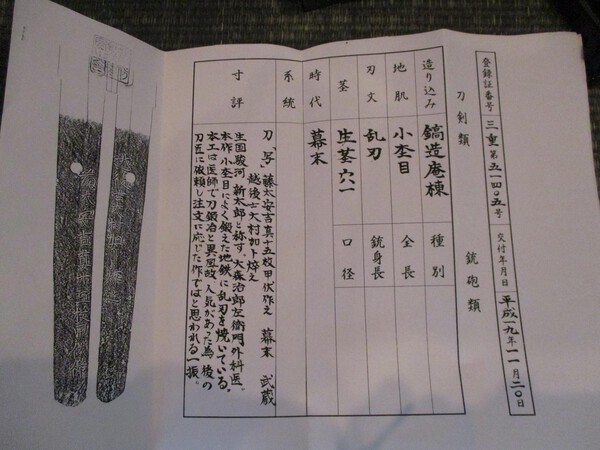 登録証番号 三重 第五一四〇五号 交付年月日 平成一九年一一月二〇日
刀剣類 銃砲類
造り込み 鎬造庵棟 種別
地肌 小杢目 全長
刃文 乱刃 銃身長
茎 生茎穴一 口径
時代 幕末
系統
寸評
刀「写」藤太安吉真十五枚甲伏作之 幕末 武蔵
越後士大村加卜焠之
生国駿河 新太郎と称す、大森治郎左衛門外科医。
本作、小杢目によく鍛えた地鉄に乱刃を焼いている。
本工は医師で刀鍛冶と異風故、人気があった為、後の
刀匠に依頼し注文に応じた作ではと思われる一振。